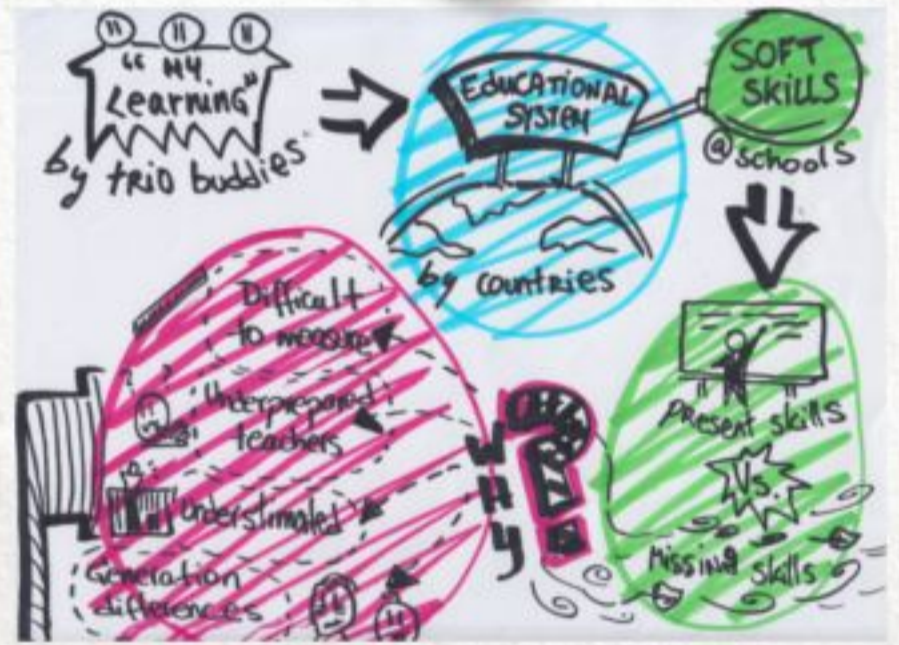 "My
Learning"
by trio buddies
EDUCATIONAL
SYSTEM
by countries
SOFT
SKILLS
@schools
present skills
Vs.
Missing skills
WHY
?
Difficult
to measure
Underprepared
teachers
understimated
Generation
differences